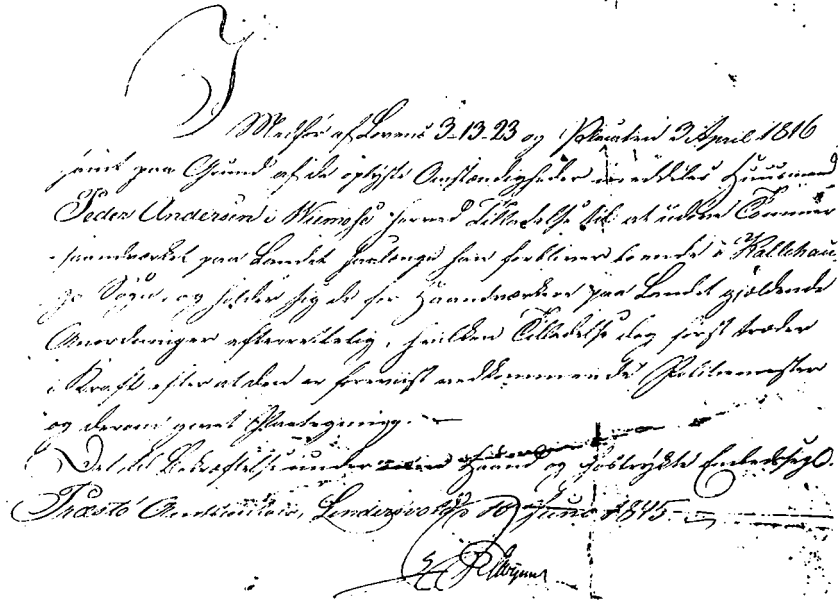 I
Medfør af Lovens 3-13-23 og Placaten 3 April 1816
samt paa Grund af de oplyste Omstændigheder meddeles Huusmand
Peder Andersen i Wiemose herved Tilladelse til at udøve Tømmer
haandværket paa Landet saalænge han forbliver boende i Kallehau
ge Sogn, og holder sig de for Haandværkere paa Landet gjældende
Anordninger efterrettelig, hvilken Tilladelse dog først træder
i Kraft efter at den er foreviist vedkommende Politiemester
og derom givet Paategning.
Det til Bekræftelse under min Haand og hostrykte Embedssegl.
Præstø Amtscontoir, 10 Juni 1845